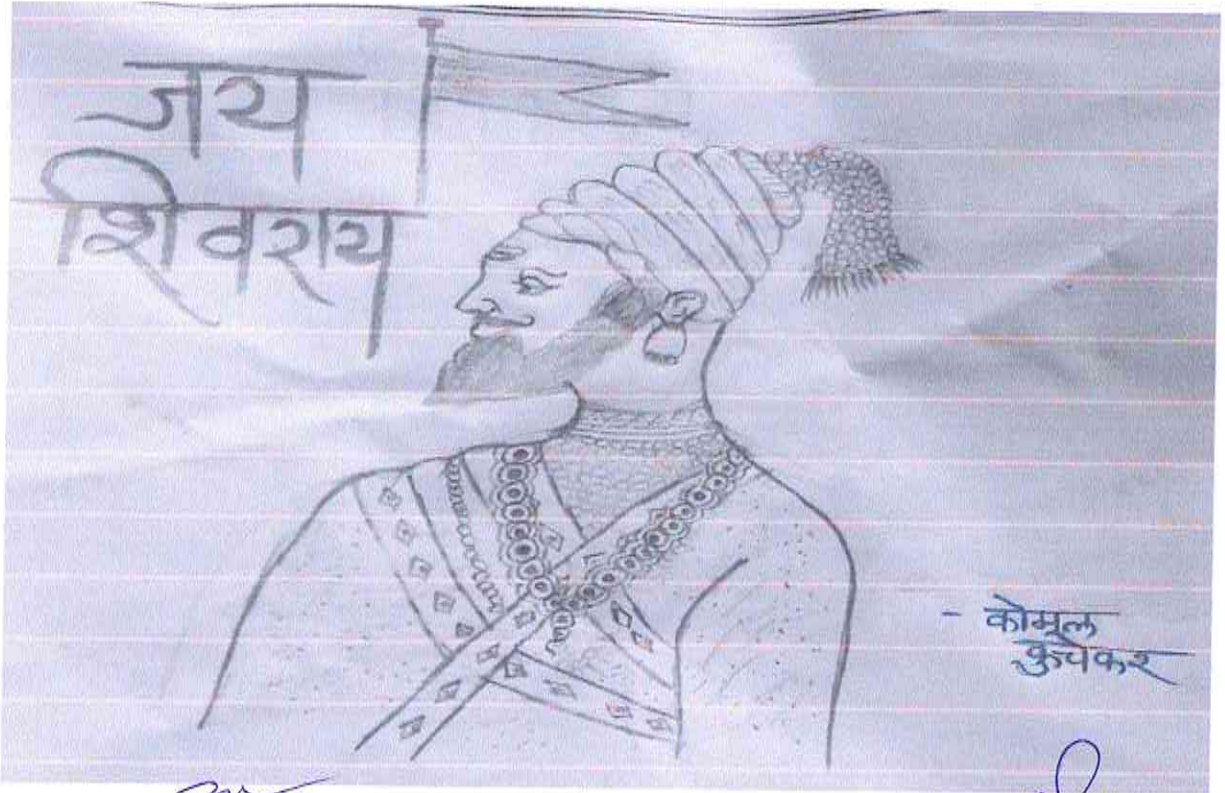 जय
शिवराय
- कोमल
कुचेकर